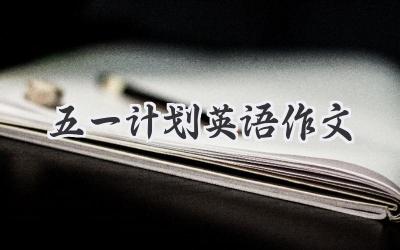 五一计划英语作文